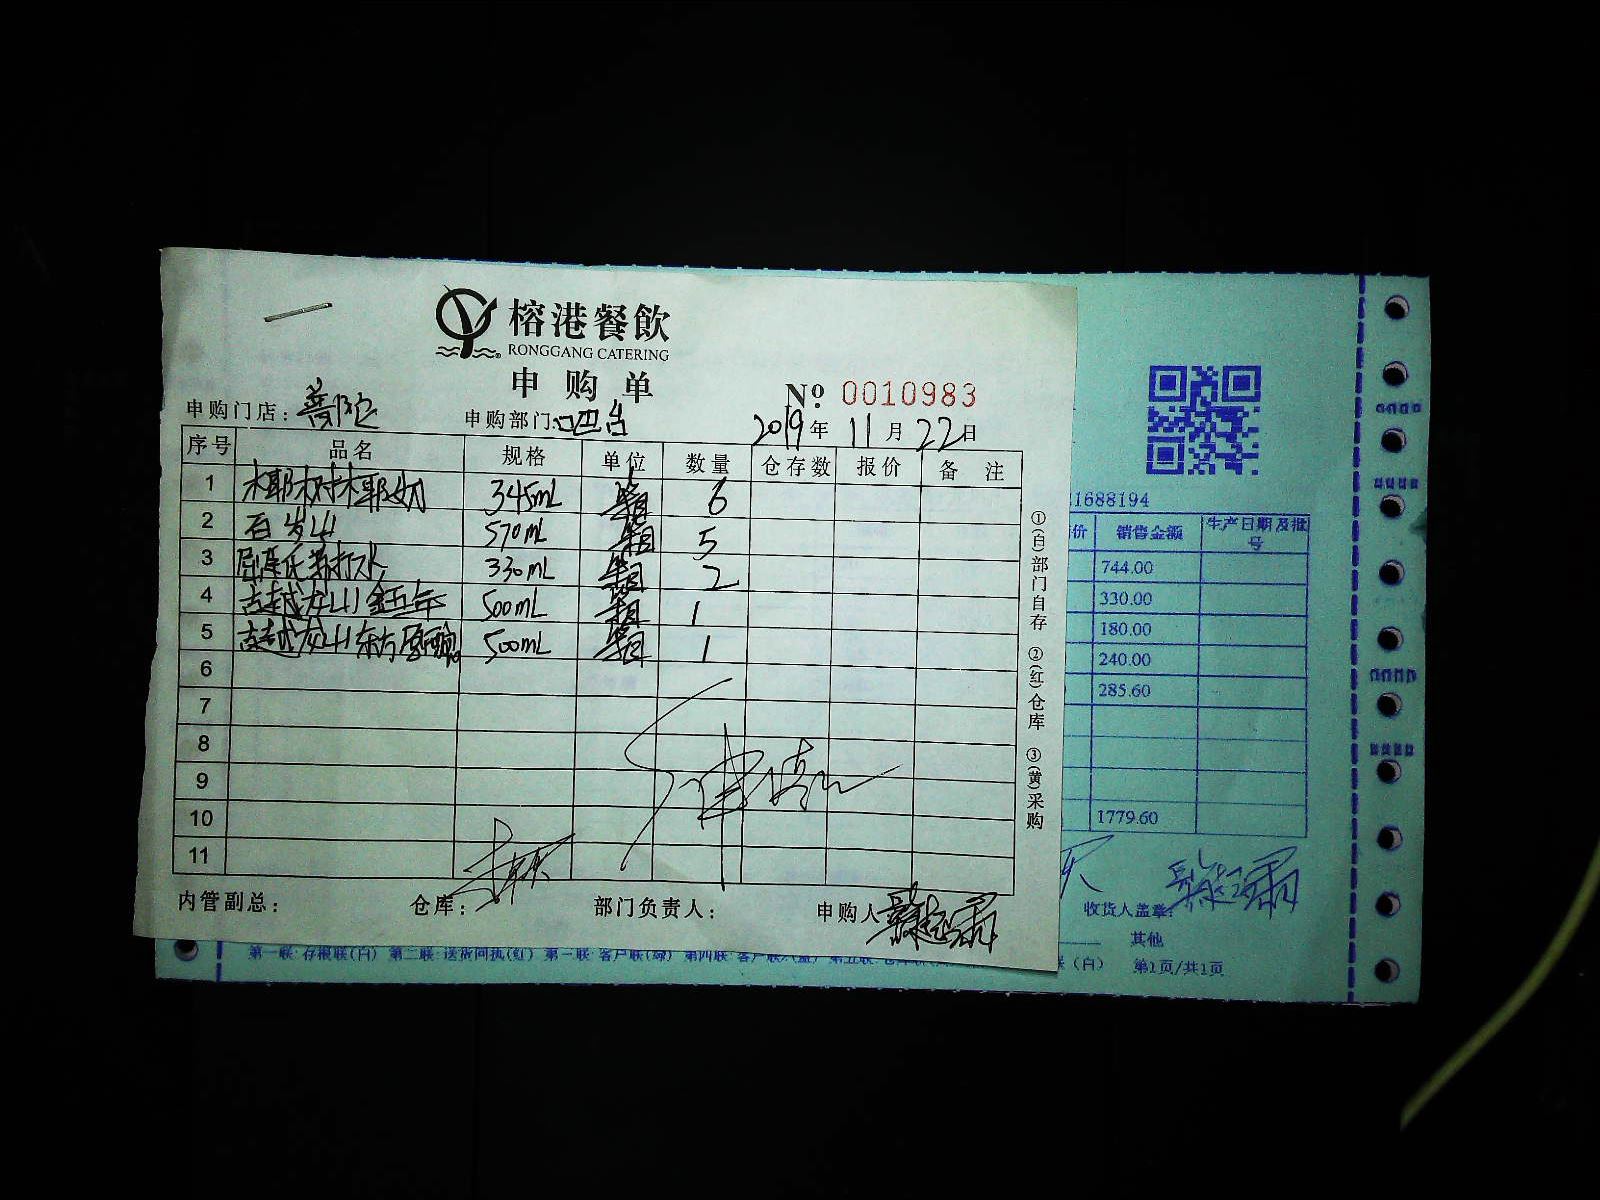 榕港餐飲
RONGGANG CATERING
申购单
Nº 0010983
申购门店: 普陀 申购部门: 吧台 2019年11月22日
序号 品名 规格 单位 数量 仓存数 报价 备 注
1 椰树椰奶 345mL 箱 6
2 百岁山 570mL 箱 5
3 屈臣氏苏打水 330mL 箱 2
4 古越龙山金五年 500mL 箱 1
5 古越龙山东方原酿 500mL 箱 1
6
7
8
9
10
11
内管副总: 仓库: 部门负责人: 申购人
①(白)部门自存 ②(红)仓库 ③(黄)采购
1688194
价 销售金额 生产日期及批号
744.00
330.00
180.00
240.00
285.60
1779.60
收货人盖章:
其他
第一联:存根联(白) 第二联:送货回执(红) 客户联(绿) 第四联:客户联 (白) 第1页/共1页